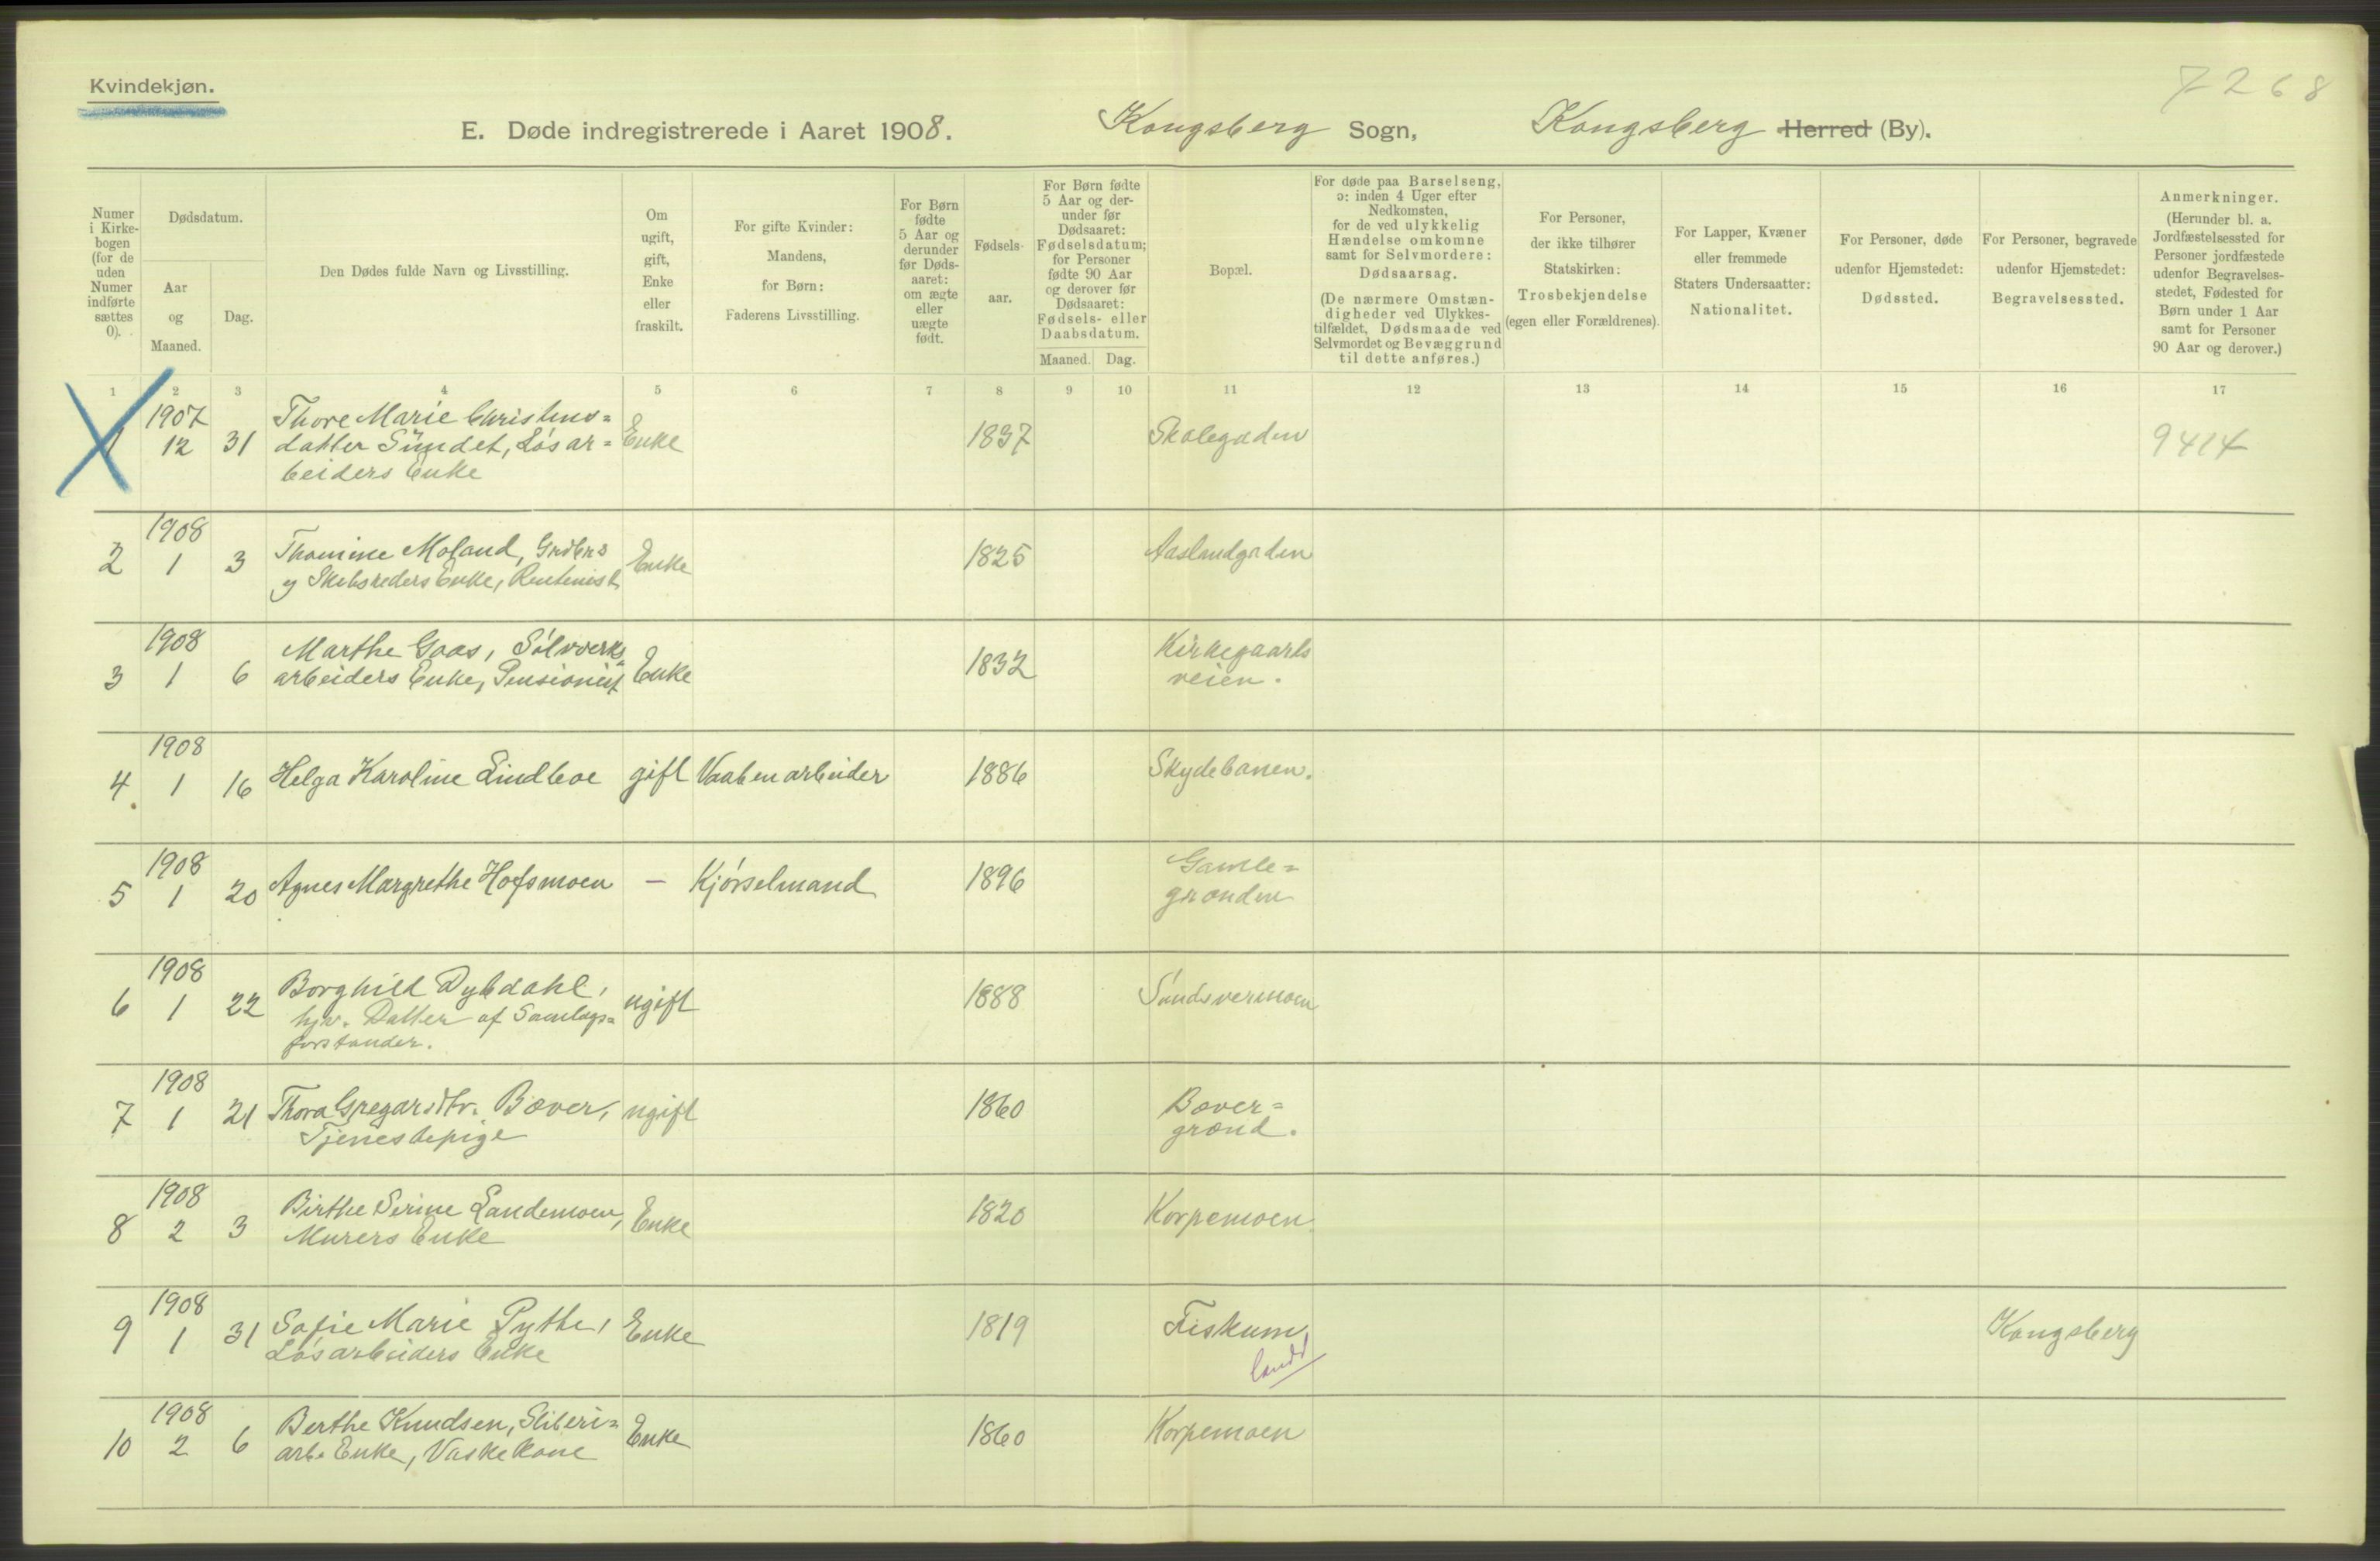 Kvindekjøn.
7268
E. Døde indregistrerede i Aaret 1908. Kongsberg Sogn, Kongsberg Herred (By).
Numer i Kirkebogen (for de uden Numer indførte sættes 0).
Dødsdatum.
Aar og Maaned.
Dag.
Den Dødes fulde Navn og Livsstilling.
Om ugift, gift, Enke eller fraskilt.
For gifte Kvinder: Mandens, for Børn: Faderens Livsstilling.
For Børn fødte 5 Aar og derunder før Dødsaaret: om ægte eller uægte født.
Fødselsaar.
For Børn fødte 5 Aar og derunder før Dødsaaret: Fødselsdatum; for Personer fødte 90 Aar og derover før Dødsaaret: Fødsels- eller Daabsdatum.
Maaned. Dag.
Bopæl.
For døde paa Barselseng, ɔ: inden 4 Uger efter Nedkomsten, for de ved ulykkelig Hændelse omkomne samt for Selvmordere: Dødsaarsag.
(De nærmere Omstændigheder ved Ulykkestilfældet, Dødsmaade ved Selvmordet og Bevæggrund til dette anføres.)
For Personer, der ikke tilhører Statskirken: Trosbekjendelse (egen eller Forældrenes).
For Lapper, Kvæner eller fremmede Staters Undersaatter: Nationalitet.
For Personer, døde udenfor Hjemstedet: Dødssted.
For Personer, begravede udenfor Hjemstedet: Begravelsessted.
Anmerkninger.
(Herunder bl. a. Jordfæstelsessted for Personer jordfæstede udenfor Begravelsesstedet, Fødested for Børn under 1 Aar samt for Personer 90 Aar og derover.)
1 2 3 4 5 6 7 8 9 10 11 12 13 14 15 16 17
1907 Thore Marie Christens=
1 12 31 datter Sundet, Løsar= Enke 1837 Skolegaden 9414
beiders Enke
1908
2 1 3 Thomine Moland, Grdbrs Enke 1825 Aaslandgaden
og Skibsreders Enke, Rentenist
1908 Marthe Gaas, Sølvværks Kirkegaards
3 1 6 arbeiders Enke, Pensionist Enke 1832 veien.
1908
4 1 16 Helga Karoline Lindboe gift Vaabenarbeider 1886 Skydebanen.
1908 Gamle=
5 1 20 Agnes Margrethe Hofsmoen — Kjørselmand 1896 grænden
1908 Borghild Dybdahl,
6 1 22 hjv. Datter af Samlags= ugift 1888 Sandsværmoen
forstander.
1908
7 1 21 Thora Gregarsdtr. Bæver, ugift 1860 Bæver=
Tjenestepige grænd.
1908 Birthe Serine Landemoen,
8 2 3 Murers Enke Enke 1820 Korpemoen
1908
9 1 31 Sofie Marie Pythe, Enke 1819 Fiskum, Kongsberg
Løsarbeiders Enke landd
1908 Berthe Knudsen, Sliberi=
10 2 6 arb. Enke, Vaskekone Enke 1860 Korpemoen